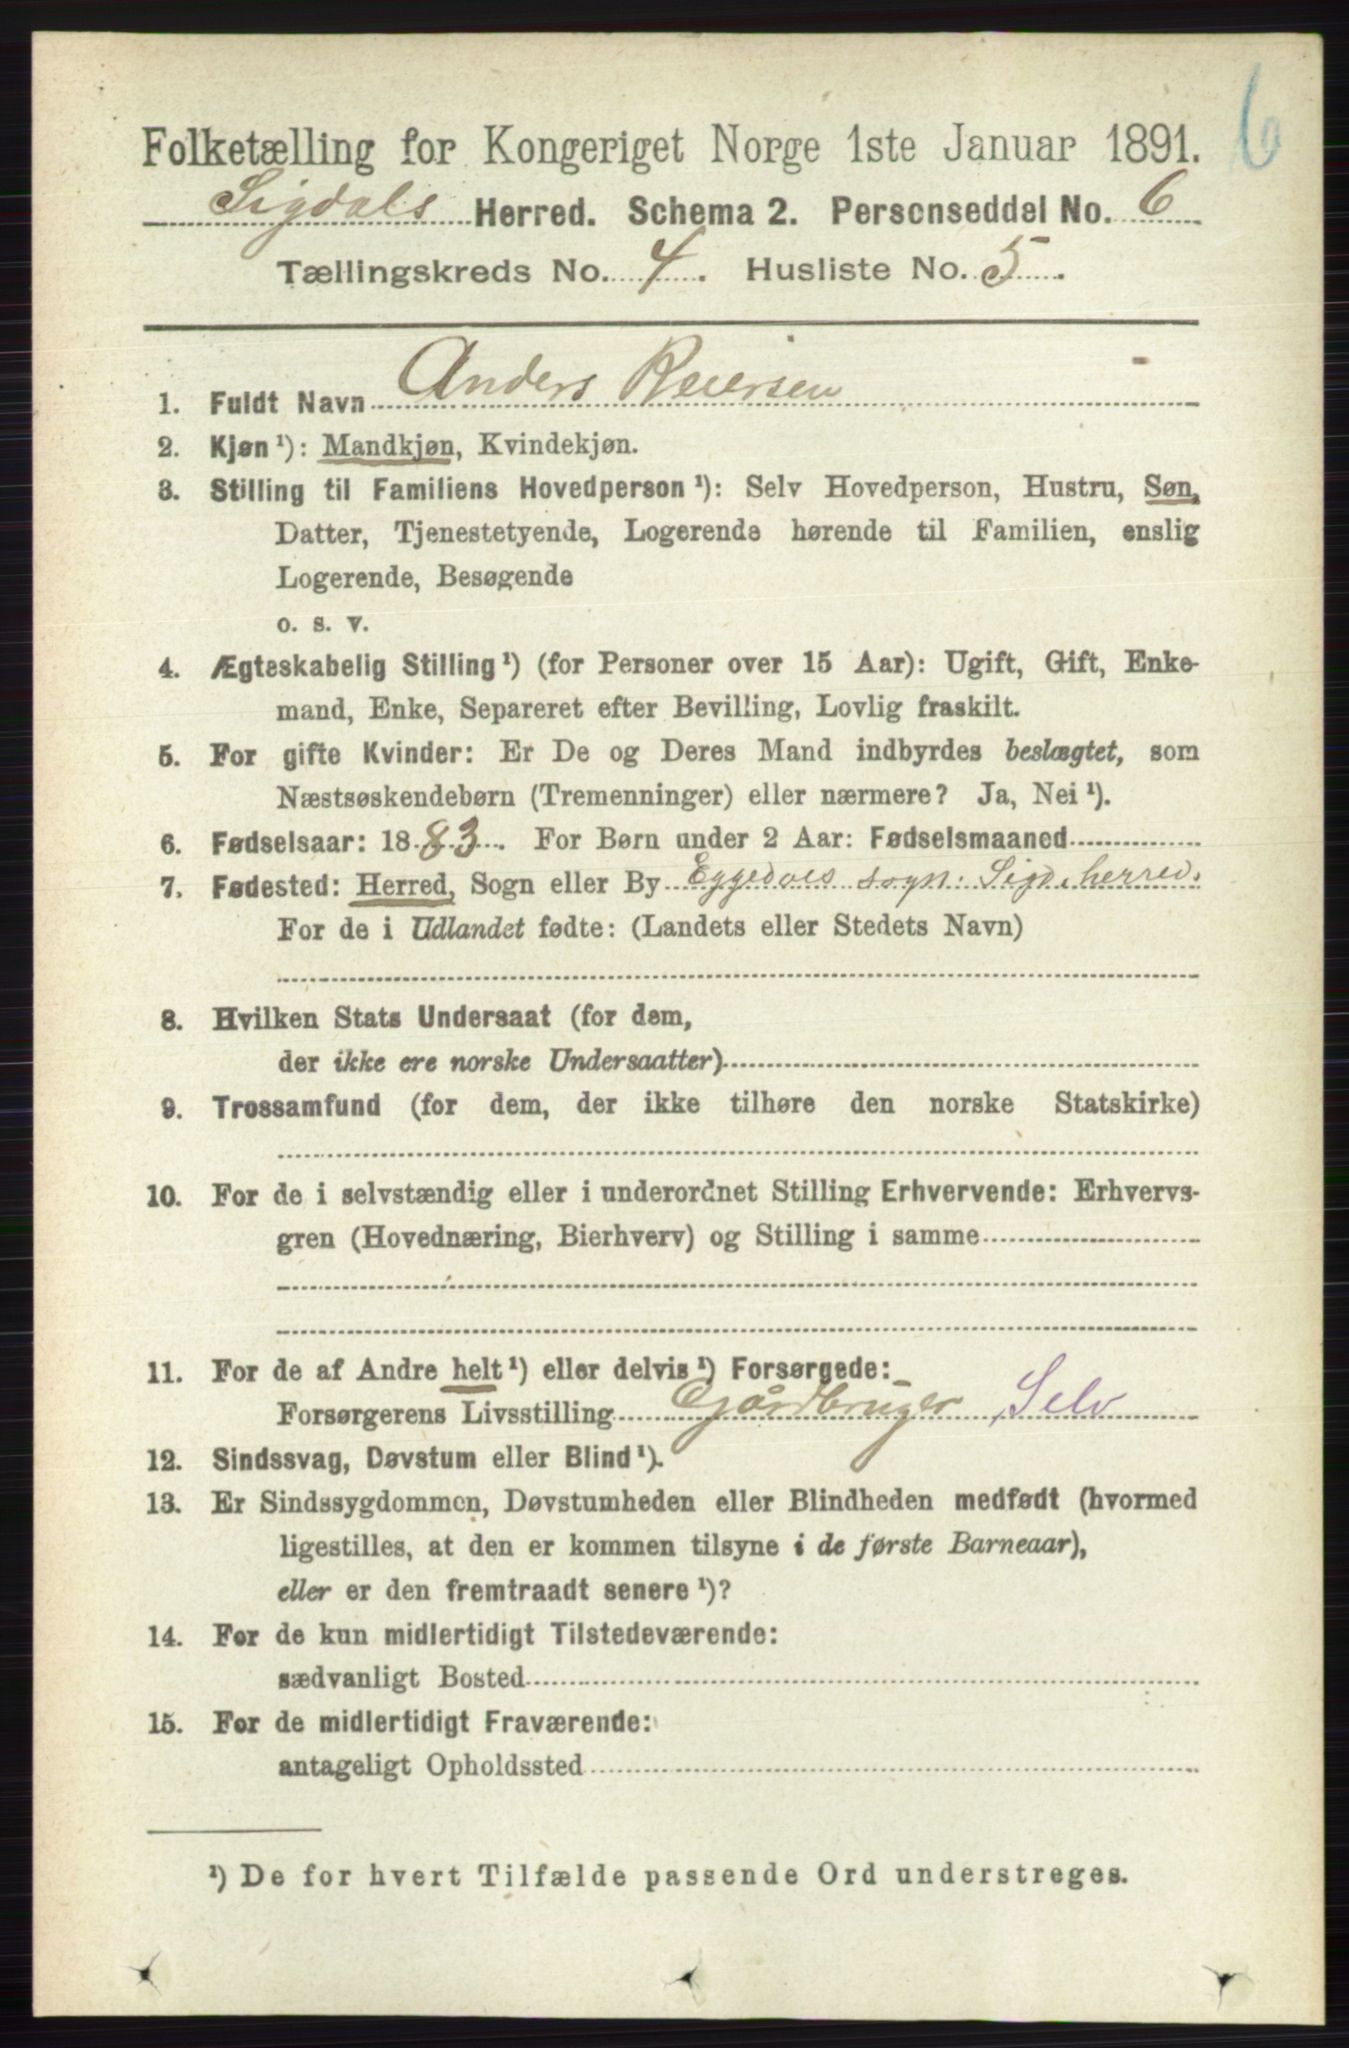 6
Folketælling for Kongeriget Norge 1ste Januar 1891.
Sigdals Herred. Schema 2. Personseddel No. 6
Tællingskreds No. 4. Husliste No. 5.
1. Fuldt Navn Anders Reiersen
2. Kjøn ¹): Mandkjøn, Kvindekjøn.
3. Stilling til Familiens Hovedperson ¹): Selv Hovedperson, Hustru, Søn,
Datter, Tjenestetyende, Logerende hørende til Familien, enslig
Logerende, Besøgende
o. s. v.
4. Ægteskabelig Stilling ¹) (for Personer over 15 Aar): Ugift, Gift, Enke-
mand, Enke, Separeret efter Bevilling, Lovlig fraskilt.
5. For gifte Kvinder: Er De og Deres Mand indbyrdes beslægtet, som
Næstsøskendebørn (Tremenninger) eller nærmere? Ja, Nei ¹).
6. Fødselsaar: 1883. For Børn under 2 Aar: Fødselsmaaned
7. Fødested: Herred, Sogn eller By Eggedals sogn. Sigd. herred.
For de i Udlandet fødte: (Landets eller Stedets Navn)
8. Hvilken Stats Undersaat (for dem,
der ikke ere norske Undersaatter)
9. Trossamfund (for dem, der ikke tilhøre den norske Statskirke)
10. For de i selvstændig eller i underordnet Stilling Erhvervende: Erhvervs-
gren (Hovednæring, Bierhverv) og Stilling i samme
11. For de af Andre helt ¹) eller delvis ¹) Forsørgede:
Forsørgerens Livsstilling Gårdbruger, Selv
12. Sindssvag, Døvstum eller Blind ¹).
13. Er Sindssygdommen, Døvstumheden eller Blindheden medfødt (hvormed
ligestilles, at den er kommen tilsyne i de første Barneaar),
eller er den fremtraadt senere ¹)?
14. For de kun midlertidigt Tilstedeværende:
sædvanligt Bosted
15. For de midlertidigt Fraværende:
antageligt Opholdssted
¹) De for hvert Tilfælde passende Ord understreges.